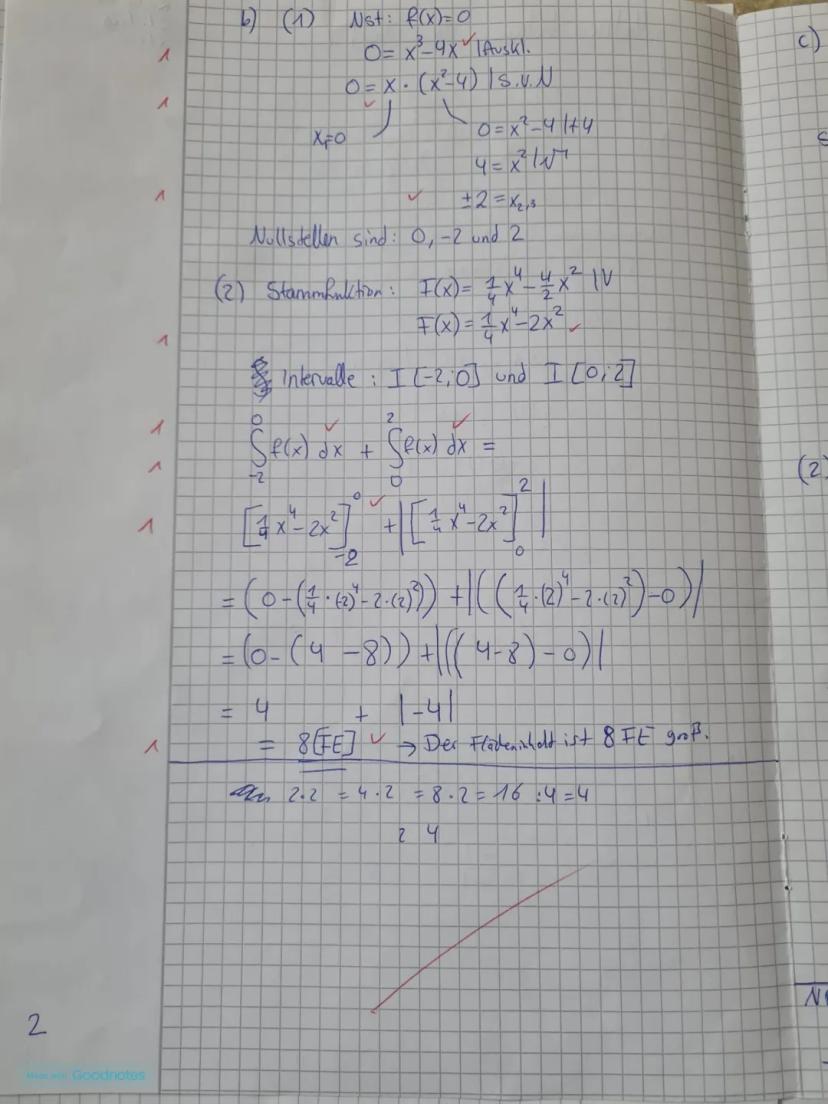 b) (1) Nst: f(x)=0
0= x³-4x |Auskl.
0= x · (x²-4) | S.v.N
x₁=0
0= x²-4 |+4
4= x² |√
±2 = x₂,₃
Nullstellen sind: 0, -2 und 2
(2) Stammfunktion: F(x)= 1/4 x⁴ - 4/2 x² |V
F(x)= 1/4 x⁴-2x²
Intervalle: I [-2;0] und I [0;2]
∫₋₂⁰ f(x) dx + ∫₀² f(x) dx =
[1/4 x⁴-2x²]₋₂⁰ + |[1/4 x⁴-2x²]₀²|
= (0-(1/4·(-2)⁴-2·(2)²)) + |((1/4·(2)⁴-2·(2)²)-0)|
= (0-(4-8)) + |((4-8)-0)|
= 4 + |-4|
= 8[FE] → Der Flächeninhalt ist 8 FE groß.
2·2 = 4·2 = 8·2 = 16 :4 = 4
2 4
2
Made with Goodnotes
c)
(2)
1
1
1
1
1
1
1
1